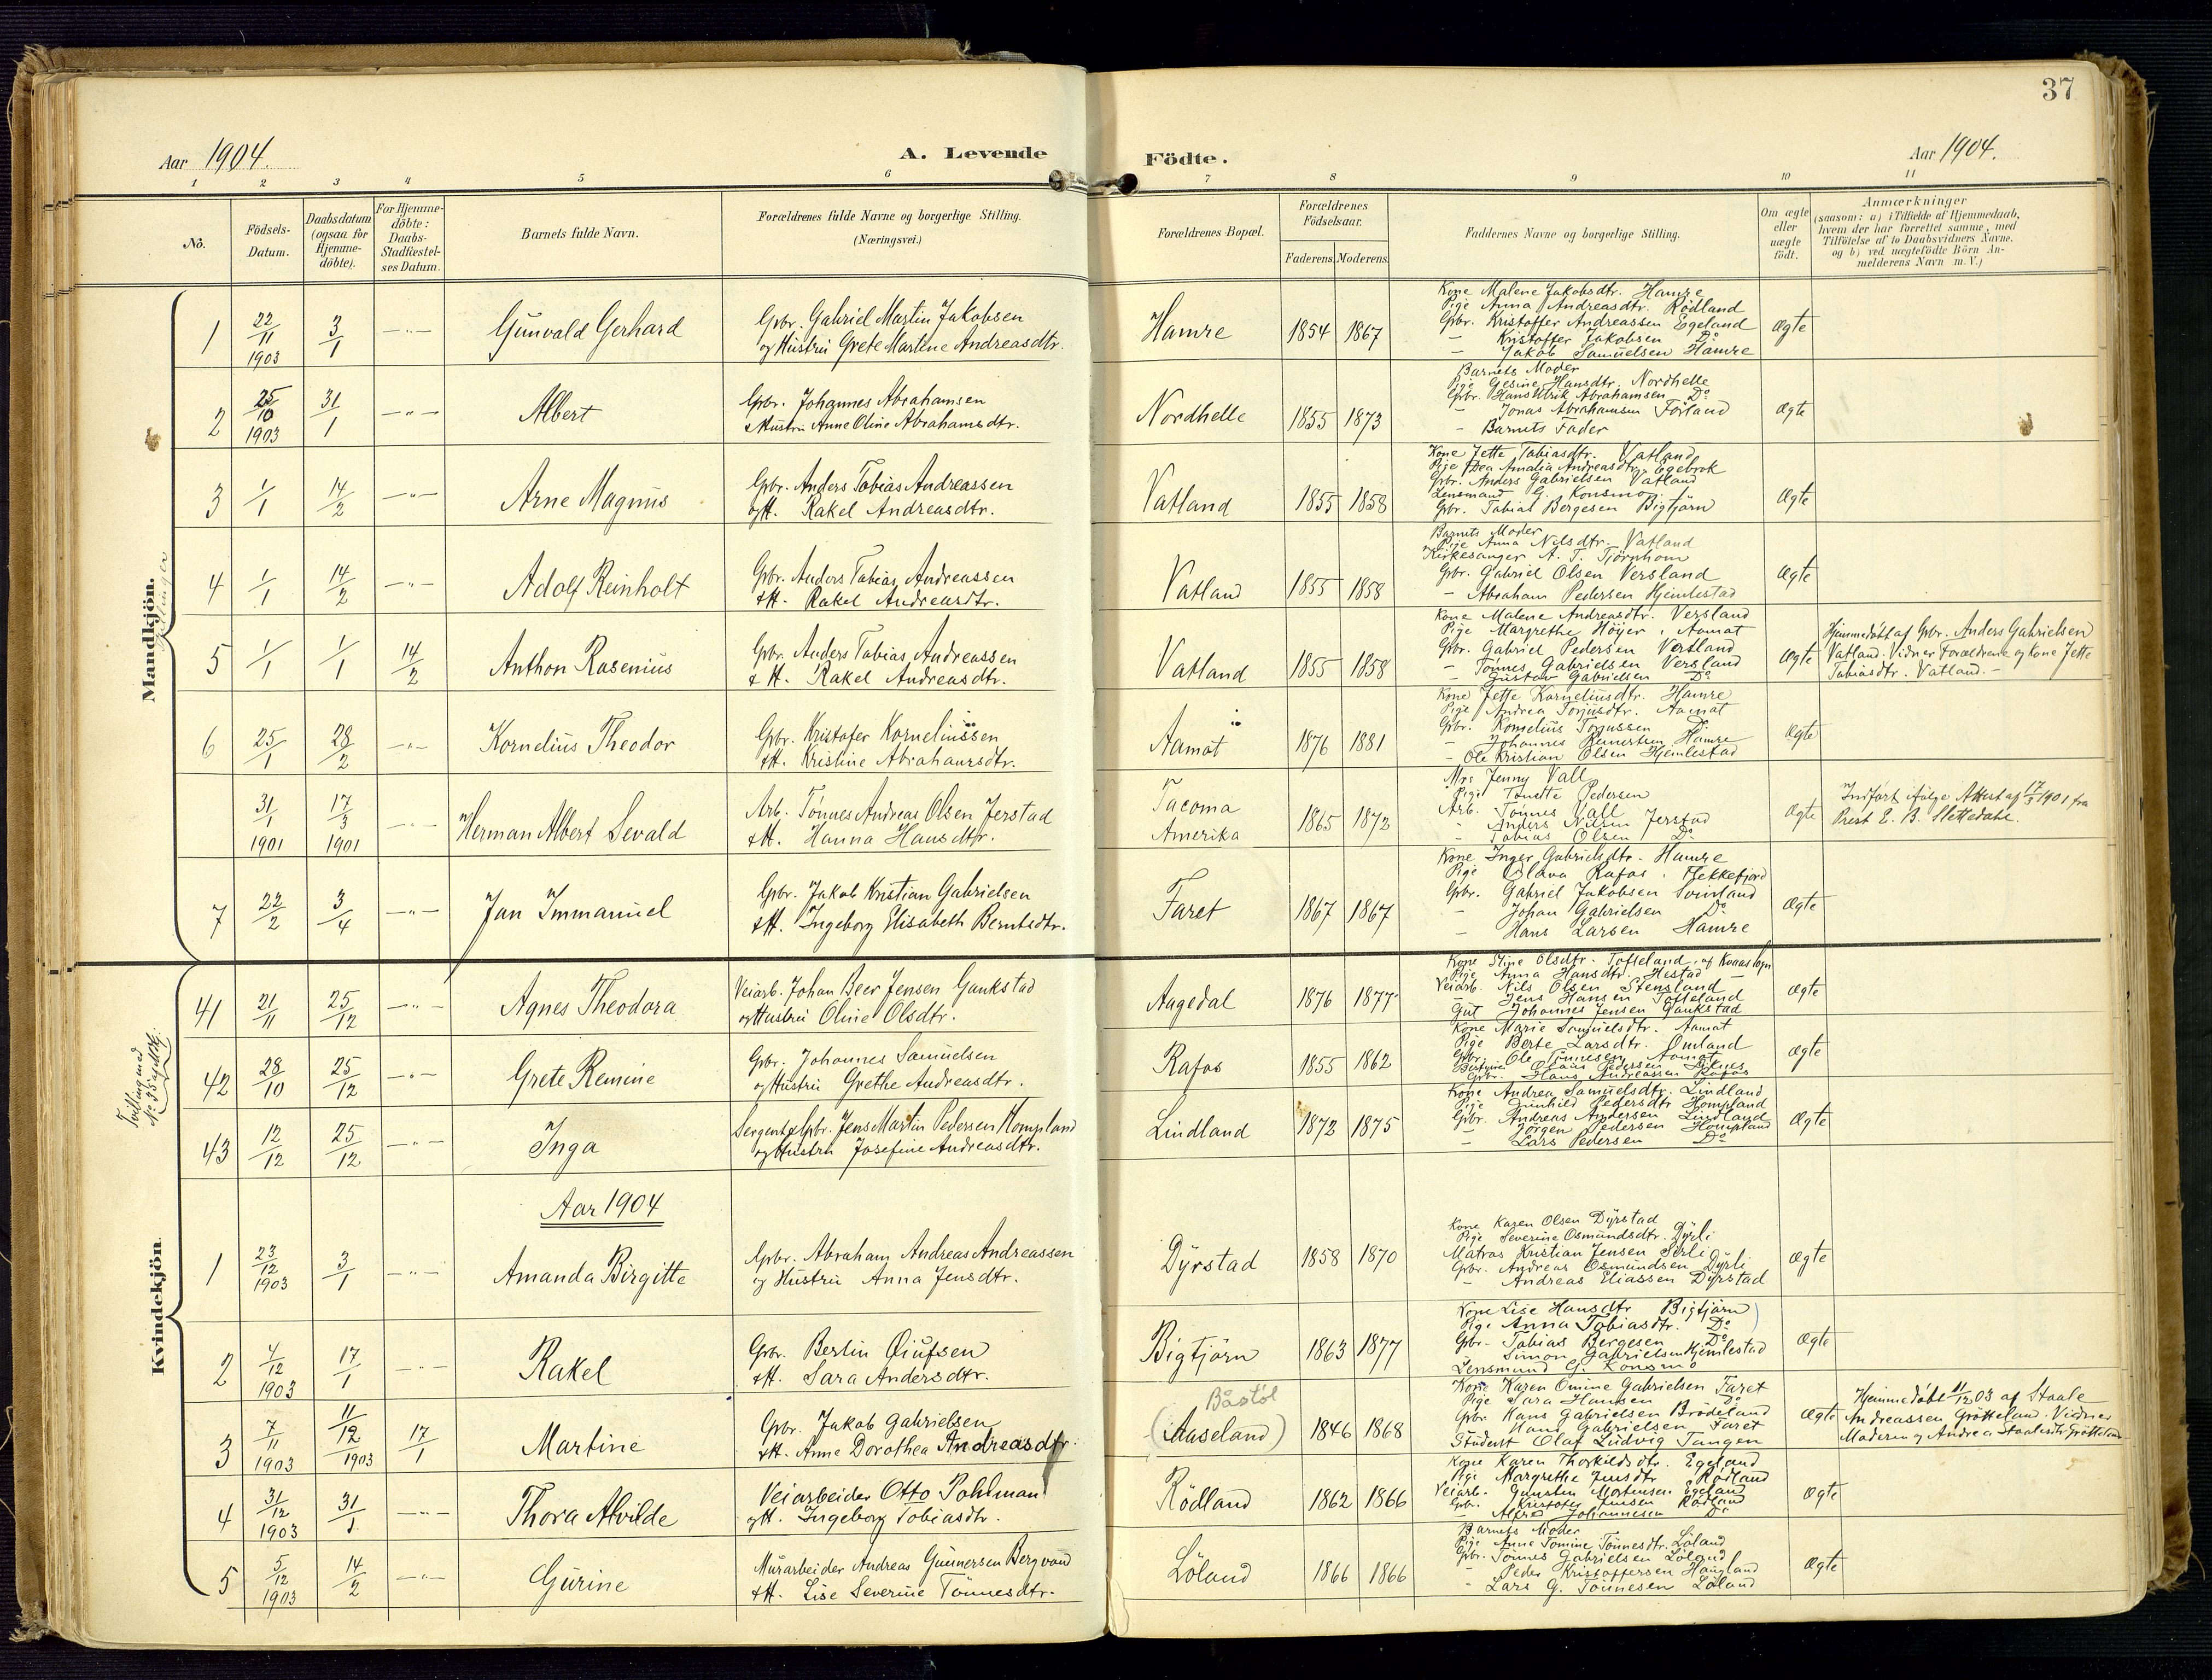 37
Aar 1904.
A. Levende
Födte.
Aar 1904.
1 2 3 4 5 6 7 8 9 10 11
No.
Födsels-Datum.
Daabsdatum (ogsaa for Hjemme-döbte).
For Hjemme-döbte: Daabs-Stadfæstel-ses Datum.
Barnets fulde Navn.
Forældrenes fulde Navne og borgerlige Stilling.
(Næringsvei.)
Forældrenes Bopæl.
Forældrenes Födselsaar.
Faderens. Moderens.
Faddernes Navne og borgerlige Stilling.
Om ægte eller uægte födt.
Anmærkninger
(saasom: a) i Tilfælde af Hjemmedaab,
hvem der har forrettet samme, med
Tilföielse af to Daabsvidners Navne.
og b) ved uægtefödte Börn An-
melderens Navn m. V.)
Mandkjön.
1 22/11 1903 3/1 -"- Gunvald Gerhard
Gbr. Gabriel Martin Jakobsen
og Hustru Grete Martine Andreasdtr.
Hamre 1854 1867
Kone Malene Jakobsdtr. Hamre
Pige Anna Andreasdtr. Rödland
Gbr. Kristoffer Andreassen Egeland
- Kristoffer Jakobsen Do
- Jakob Samuelsen Hamre
Ægte
2 25/10 1903 31/1 -"- Albert
Gbr. Johannes Abrahamsen
& Hustru Anne Oline Abrahamsdtr.
Nordhelle 1855 1873
Barnets Moder
Pige Gesine Hansdtr. Nordhelle
Gbr. Hans Ulrik Abrahamsen Do
- Jonas Abrahamsen Förland
- Barnets Fader
Ægte
3 1/1 14/2 -"- Arne Magnus
Gbr. Anders Tobias Andreassen
og H. Rakel Andreasdtr.
Vatland 1855 1858
Kone Jette Tobiasdtr. Vatland
Pige Thea Amalia Andreasdtr. Egebrok
Gbr. Anders Gabrielsen Vatland
Lensmand G. Konsmo
Gbr. Tobias Bergesen Bigtjörn
Ægte
4 1/1 14/2 -"- Adolf Reinholt
Gbr. Anders Tobias Andreassen
& H. Rakel Andreasdtr.
Vatland 1855 1858
Barnets Moder
Pige Anna Nilsdtr. Vatland
Kirkesanger A. T. Tjörnhom
Gbr. Gabriel Olsen Versland
- Abraham Pedersen Hjemlestad
Ægte
5 1/1 1/1 14/2 Anthon Rasenius
Gbr. Anders Tobias Andreassen
& H. Rakel Andreasdtr.
Vatland 1855 1858
Kone Malene Andreasdtr. Versland
Pige Margrethe Höyer, Aamot
Gbr. Gabriel Pedersen Versland
- Tönnes Gabrielsen Versland
- Gustav Gabrielsen Do
Ægte
Hjemmedöbt af Gbr. Anders Gabrielsen
Vatland. Vidner Forældrene og kone Jette
Tobiasdtr. Vatland. -
6 25/1 28/2 -"- Kornelius Theodor
Gbr. Kristofer Korneliussen
& H. Kristine Abrahamsdtr.
Aamot 1876 1881
Kone Jette Korneliusdtr. Hamre
Pige Andrea Torjusdtr. Aamot
Gbr. Kornelius Torjussen Do
- Johannes Reinertsen Hamre
- Ole Kristian Olsen Hjemlestad
Ægte
31/1 1901 17/3 1901 -"- Herman Albert Sevald
Arb. Tönnes Andreas Olsen Jerstad
& H. Hanna Hansdtr.
Tacoma
Amerika
1865 1872
Mrs Jenny Vall
Pige Tonette Pedersen
Arb. Tönnes Vall
" Anders Nilsen Jerstad
- Tobias Olsen Do
Ægte
Indfört ifölge Attest af 17/3 1901 fra
Prest E. B. Slettedahl.
7 22/2 3/4 -"- Jan Immanuel
Gbr. Jakob Kristian Gabrielsen
& H. Ingeborg Elisabeth Berntsdtr.
Faret 1867 1867
Kone Inger Gabrielsdtr. Hamre
Pige Olava Rafos, Flekkefjord
Gbr. Gabriel Jakobsen Svinland
- Johan Gabrielsen Do
- Hans Larsen Hamre
Ægte
Kvindekjön.
41 21/11 25/12 -"- Agnes Theodora
Veiarb. Johan Beer Jensen Gaukstad
og Hustru Oline Olsdtr.
Augedal 1876 1877
Kone Stine Olsdtr. Tofteland, af
Pige Anna Hansdtr. Hestad -
Veiarb. Nils Olsen Stensland
- Jens Hansen Tofteland
Gut Johannes Jensen Gaukstad
Ægte
Tvilling med
No 35
42 28/10 25/12 -"- Grete Remine
Gbr. Johannes Samuelsen
og Hustru Grethe Andreasdtr.
Rafos 1855 1862
Kone Marie Samuelsdtr. Aamot
Pige Berte Larsdtr. Omland
Gbr. Ole Tönnesen Aamot
Gbr. Hans Andreassen Rafos
Ægte
43 12/12 25/12 -"- Inga
Sergent & Gbr. Jens Martin Pedersen Hompland
og Hustru Josefine Andreasdtr.
Lindland 1872 1875
Kone Andrea Samuelsdtr. Lindland
Pige Gunhild Pedersdtr Hompland
Gbr. Andreas Andersen Lindland
- Jörgen Pedersen Hompland
- Lars Pedersen Do
Ægte
Aar 1904
1 23/12 1903 3/1 -"- Amanda Birgitte
Gbr. Abraham Andreas Andreassen
og Hustru Anna Jensdtr.
Dyrstad 1858 1870
Kone Karen Olsen Dyrstad
Pige Severine Osmundsdtr. Dyrli
Matros Kristian Jensen Serli
Gbr. Andreas Osmundsen Dyrli
- Andreas Eliassen Dyrstad
Ægte
2 4/12 1903 17/1 -"- Rakel
Gbr. Berlin Oiufsen
& H. Sara Andersdtr.
Bigtjörn 1863 1877
Kone Lise Hansdtr Bigtjörn
Pige Anna Tobiasdtr. Do
Gbr. Tobias Bergesen Do
Simon Gabrielsen Hjemlestad
Lensmand G. Konsmo
Ægte
3 7/11 1903 11/12 1903 17/1 Martine
Gbr. Jakob Gabrielsen
& H. Anne Dorothea Andreasdtr.
Båstöl
(Aaseland) 1846 1868
Kone Karen Omine Gabrielsen Faret
Pige Sara Hansen Do
Gbr. Hans Gabrielsen Brödeland
" Hans Gabrielsen Faret
Student Olaf Ludvig Tangen
Ægte
Hjemmedöbt 11/12 03 af Staale
Andreassen Grötteland. Vidner
Moderen og Andrea Staalesdtr Grötteland
4 31/12 1903 31/1 -"- Thora Alvilde
Veiarbeider Otto Pohlman
og H. Ingeborg Tobiasdtr.
Rödland 1862 1866
Kone Karen Thorkildsdtr. Egeland
Pige Margrethe Jensdtr Rödland
Veiarb. Gunstin Mortensen Egeland
Gbr. Kristofer Jensen Rödland
- Alfred Johannesen Do
Ægte
5 5/12 1903 14/2 -"- Gurine
Murarbeider Andreas Gunnersen Bergvand
& H. Lise Severine Tönnesdtr.
Löland 1866 1866
Barnets Moder
Pige Anne Tomine Tönnesdtr. Löland
Gbr. Tönnes Gabrielsen Löland
- Peder Kristoffersen Haugland
" Lars G. Tönnesen Löland
Ægte